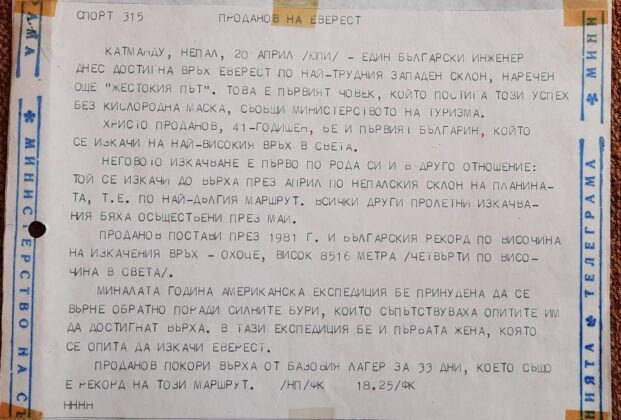 СПОРТ 315 ПРОДАНОВ НА ЕВЕРЕСТ
КАТМАНДУ, НЕПАЛ, 20 АПРИЛ /ЮПИ/ - ЕДИН БЪЛГАРСКИ ИНЖЕНЕР
ДНЕС ДОСТИГНА ВРЪХ ЕВЕРЕСТ ПО НАЙ-ТРУДНИЯ ЗАПАДЕН СКЛОН, НАРЕЧЕН
ОЩЕ "ЖЕСТОКИЯ ПЪТ". ТОВА Е ПЪРВИЯТ ЧОВЕК, КОЙТО ПОСТИГА ТОЗИ УСПЕХ
БЕЗ КИСЛОРОДНА МАСКА, СЪОБЩИ МИНИСТЕРСТВОТО НА ТУРИЗМА.
ХРИСТО ПРОДАНОВ, 41-ГОДИШЕН, БЕ И ПЪРВИЯТ БЪЛГАРИН, КОЙТО
СЕ ИЗКАЧИ НА НАЙ-ВИСОКИЯ ВРЪХ В СВЕТА.
НЕГОВОТО ИЗКАЧВАНЕ Е ПЪРВО ПО РОДА СИ И В ДРУГО ОТНОШЕНИЕ:
ТОЙ СЕ ИЗКАЧИ ДО ВЪРХА ПРЕЗ АПРИЛ ПО НЕПАЛСКИЯ СКЛОН НА ПЛАНИНА-
ТА, Т.Е. ПО НАЙ-ДЪЛГИЯ МАРШРУТ. ВСИЧКИ ДРУГИ ПРОЛЕТНИ ИЗКАЧВА-
НИЯ БЯХА ОСЪЩЕСТВЕНИ ПРЕЗ МАЙ.
ПРОДАНОВ ПОСТАВИ ПРЕЗ 1981 Г. И БЪЛГАРСКИЯ РЕКОРД ПО ВИСОЧИНА
НА ИЗКАЧЕНИЯ ВРЪХ - ОХОЦЕ, ВИСОК 8516 МЕТРА /ЧЕТВЪРТИ ПО ВИСО-
ЧИНА В СВЕТА/.
МИНАЛАТА ГОДИНА АМЕРИКАНСКА ЕКСПЕДИЦИЯ БЕ ПРИНУДЕНА ДА СЕ
ВЪРНЕ ОБРАТНО ПОРАДИ СИЛНИТЕ БУРИ, КОИТО СЪПЪТСТВУВАХА ОПИТИТЕ ИМ
ДА ДОСТИГНАТ ВЪРХА. В ТАЗИ ЕКСПЕДИЦИЯ БЕ И ПЪРВАТА ЖЕНА, КОЯТО
СЕ ОПИТА ДА ИЗКАЧИ ЕВЕРЕСТ.
ПРОДАНОВ ПОКОРИ ВЪРХА ОТ БАЗОВИЯ ЛАГЕР ЗА 33 ДНИ, КОЕТО СЪЩО
Е РЕКОРД НА ТОЗИ МАРШРУТ. /НП/ФК 18.25/ФК
НННН
АМА * МИНИСТЕРСТВО НА СЪ
НИЯТА * ТЕЛЕГРАМА * МИНИ